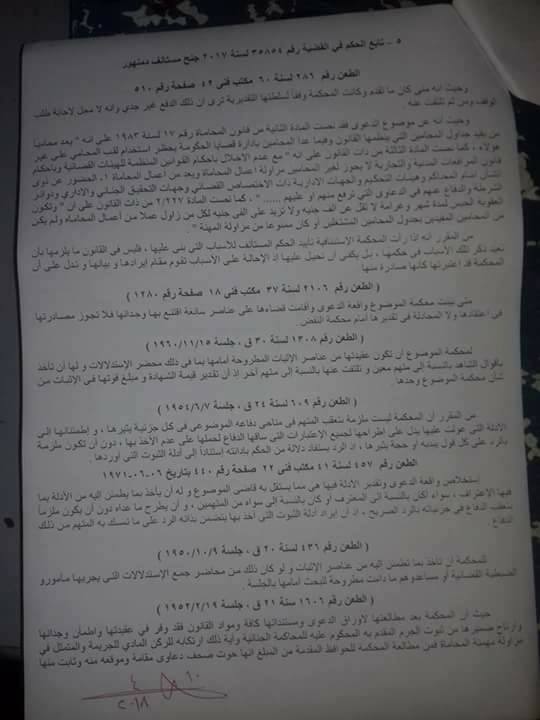 ٥ – تابع الحكم في القضية رقم ٣٥٨٥٤ لسنة ٢٠١٧ جنح مستأنف دمنهور
الطعن رقم ٢٨٦ لسنة ٦٠ مكتب فنى ٤٢ صفحة رقم ٥١٠
وحيث انه متى كان ما تقدم وكانت المحكمة وفقا لسلطتها التقديرية ترى ان ذلك الدفع غير جدي وانه لا محل لاجابة طلب
الوقف ومن ثم تلتفت عنه
وحيث انه عن موضوع الدعوى فقد نصت المادة الثانية من قانون المحاماة رقم ١٧ لسنة ١٩٨٣ على انه " يعد محاميا
من يقيد جداول المحامين التي ينظمها القانون وفيما عدا المحامين بادارة قضايا الحكومة يحظر استخدام لقب المحامي على غير
هؤلاء ، كما نصت المادة الثالثة من ذات القانون على انه " مع عدم الاخلال باحكام القوانين المنظمة للهيئات القضائية وباحكام
قانون المرافعات المدنية والتجارية لا يجوز لغير المحامين مزاولة اعمال المحاماة ويعد من أعمال المحاماة ١ـ الحضور عن ذوى
الشان امام المحاكم وهيئات التحكيم والجهات الادارية ذات الاختصاص القضائي وجهات التحقيق الجنائي والاداري ودوائر
الشرطة والدفاع عنهم في الدعاوى التي ترفع منهم او عليهم ...... " ، كما نصت المادة ٢/٢٢٧ من ذات القانون على ان " وتكون
العقوبة الحبس لمدة شهر وغرامة لا تقل عن الف جنيه ولا تزيد على الفى جنيه لكل من زاول عملا من أعمال المحاماه ولم يكن
من المحامين المقيدين بجدول المحامين المشتغلين أو كان ممنوعا من مزاولة المهنة "
من المقرر أنه اذا رأت المحكمة الاستئنافية تأييد الحكم المستأنف للأسباب التى بنى عليها ، فليس فى القانون ما يلزمها بأن
تعيد ذكر تلك الأسباب فى حكمها ، بل يكفى ان تحيل عليها إذ الإحالة على الأسباب تقوم مقام إيرادها و بيانها و تدل على أن
المحكمة قد اعتبرتها كأنها صادرة منها
( الطعن رقم ٢١٠٦ لسنة ٣٧ مكتب فنى ١٨ صفحة رقم ١٢٨٠ )
متى بينت محكمة الموضوع واقعة الدعوى وأقامت قضاءها على عناصر سائغة اقتنع بها وجدانها فلا تجوز مصادرتها
فى اعتقادها ولا المجادلة فى تقديرها أمام محكمة النقض.
( الطعن رقم ١٣٠٨ لسنة ٣٠ ق ، جلسة ١٩٦٠/١١/١٥ )
لمحكمة الموضوع ان تكون عقيدتها من عناصر الإثبات المطروحة أمامها بما فى ذلك محضر الإستدلالات و لها أن تأخذ
بأقوال الشاهد بالنسبة إلى متهم معين و تلتفت عنها بالنسبة إلى متهم آخر إذ أن تقدير قيمة الشهادة و مبلغ قوتها فى الإثبات من
شأن محكمة الموضوع وحدها
( الطعن رقم ٦٠٩ لسنة ٢٤ ق ، جلسة ١٩٥٤/٦/٧ )
من المقرر أن المحكمة ليست ملزمة بتعقب المتهم فى مناحى دفاعه الموضوعى فى كل جزئية يثيرها ، و إطمئنانها إلى
الأدلة التى عولت عليها يدل على اطراحها لجميع الإعتبارات التى ساقها الدفاع لحملها على عدم الأخذ بها ، دون أن تكون ملزمة
بالرد على كل قول يبديه أو حجة يثيرها ، إذ الرد يستفاد دلالة من الحكم بإدانته إستناداً إلى أدلة الثبوت التى أوردها .
الطعن رقم ٤٥٧ لسنة ٤١ مكتب فنى ٢٢ صفحة رقم ٤٤٠ بتاريخ ٠٦-٠٦-١٩٧١
إستخلاص واقعة الدعوى وتقدير الأدلة فيها هى مما يستقل به قاضى الموضوع و له أن يأخذ بما يطمئن إليه من الأدلة بما
فيها الإعتراف ، سواء أكان بالنسبة الى المعترف أو كان بالنسبة الى سواه من المتهمين ، و أن يطرح ما عداه دون أن يكون ملزماً
بتعقب الدفاع في جزئياته بالرد الصريح ، اذ أن إيراد أدلة الثبوت التى أخذ بها يتضمن بذاته الرد على ما تمسك به المتهم من ذلك
الدفاع
( الطعن رقم ٤٣٦ لسنة ٢٠ ق ، جلسة ١٩٥٠/١٠/٩ )
للمحكمة أن تأخذ بما تطمئن إليه من عناصر الإثبات و لو كان ذلك من محاضر جمع الإستدلالات التى يجريها مأمورو
الضبطية القضائية أو مساعدوهم ما دامت مطروحة للبحث أمامها بالجلسة .
( الطعن رقم ١٦٠٦ لسنة ٢١ ق ، جلسة ١٩٥٢/٢/١٩ )
حيث أن المحكمة بعد مطالعتها لأوراق الدعوى ومستنداتها كافة ومواد القانون فقد وقر في عقيدتها واطمأن وجدانها
وارتاح ضميرها من ثبوت الجرم المقدم به المحكوم عليه للمحاكمة الجنائية وآية ذلك ارتكابه للركن المادي للجريمة والمتمثل في
مزاولة مهنة المحاماة فمن مطالعة المحكمة للحوافظ المقدمة من المبلغ انها حوت صحف دعاوى مقامة وموقعه منه وثابت منها
١٠
٤
٢٠١٨